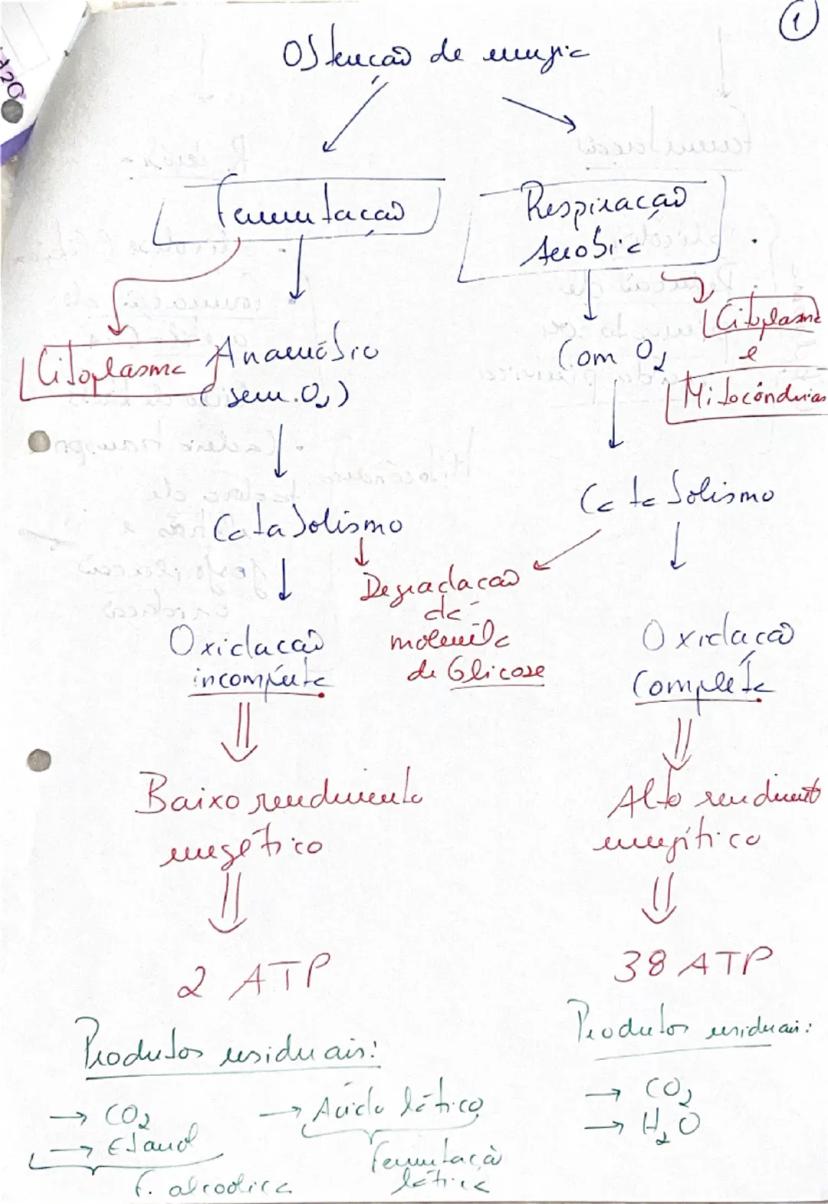 1
Obtenção de energia
Fermentação
Respiração
Aeróbia
Citoplasma
e
Mitocôndrias
Citoplasma
Anaeróbio
(sem O2)
Com O2
Catabolismo
Catabolismo
Degradação
da
molécula
de Glicose
Oxidação
incompleta
Oxidação
Completa
Baixo rendimento
energético
Alto rendimento
energético
2 ATP
38 ATP
Produtos residuais:
→ CO2
→ Etanol
F. alcoólica
→ Ácido lático
Fermentação
lática
Produtos residuais:
→ CO2
→ H2O